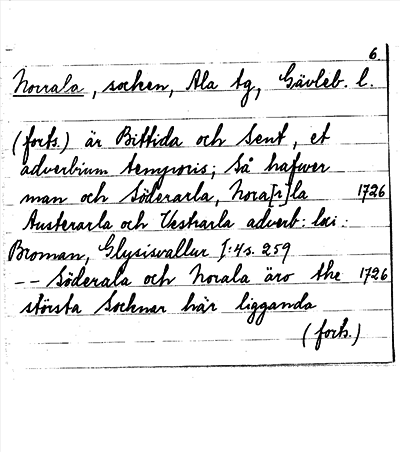 6.
Norrala, socken, Ala tg, Gävleb. l.
(forts.) är Bittida och Sent, et
adverbium temporis; Så hafwer
man och Söderarla, Nora[r]la 1726
Austerarla och Vestrarla adverb: loci:
Broman, Glysisvallur I:4 s. 259
-- Söderala och Norala äro the 1726
största Socknar här ligganda
(forts.)